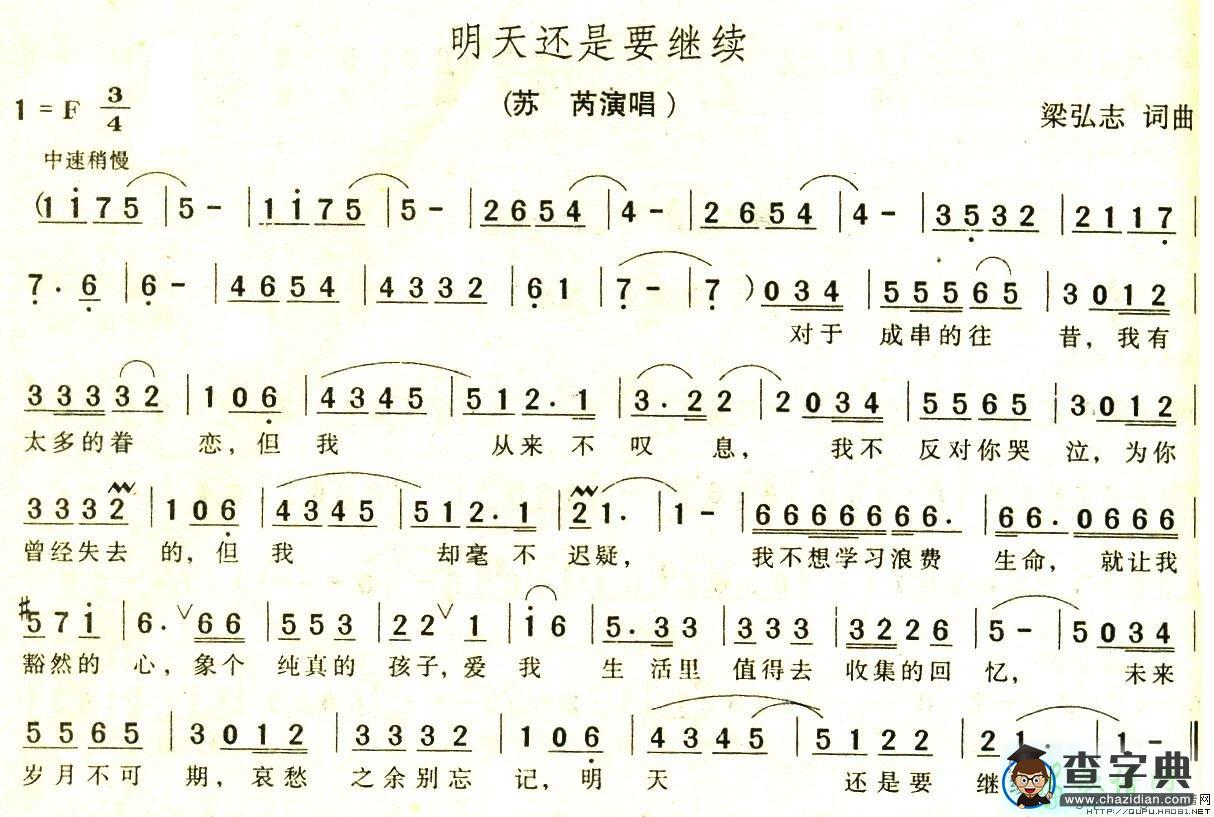 明天还是要继续
(苏 芮演唱)
1 = F 3/4
梁弘志 词曲
中速稍慢
(1 1 7 5 | 5 - | 1 1 7 5 | 5 - | 2 6 5 4 | 4 - | 2 6 5 4 | 4 - | 3 5 3 2 | 2 1 1 7 |
7 · 6 | 6 - | 4 6 5 4 | 4 3 3 2 | 6 1 | 7 - | 7 ) 0 3 4 | 5 5 5 6 5 | 3 0 1 2 |
对于 成串的往 昔，我有
3 3 3 3 2 | 1 0 6 | 4 3 4 5 | 5 1 2 · 1 | 3 · 2 2 | 2 0 3 4 | 5 5 6 5 | 3 0 1 2 |
太多的眷 恋，但 我 从来不 叹 息， 我不 反对你哭 泣，为你
3 3 3 2 | 1 0 6 | 4 3 4 5 | 5 1 2 · 1 | 2 1 · | 1 - | 6 6 6 6 6 6 6 · | 6 6 · 0 6 6 6 |
曾经失去 的，但 我 却毫 不 迟疑， 我不想学习浪费 生命，就让我
#5 7 1 | 6 · ∨ 6 6 | 5 5 3 | 2 2 ∨ 1 | 1 6 | 5 · 3 3 | 3 3 3 | 3 2 2 6 | 5 - | 5 0 3 4 |
豁然的 心，象个 纯真的 孩子，爱 我 生 活里 值得去 收集的回 忆， 未来
5 5 6 5 | 3 0 1 2 | 3 3 3 2 | 1 0 6 | 4 3 4 5 | 5 1 2 2 | 2 1 · | 1 - ‖
岁月不可 期，哀愁 之余别忘 记，明 天 还是要 继
查字典
www.chazidian.com
HTTP://QUPU.HAO81.NET